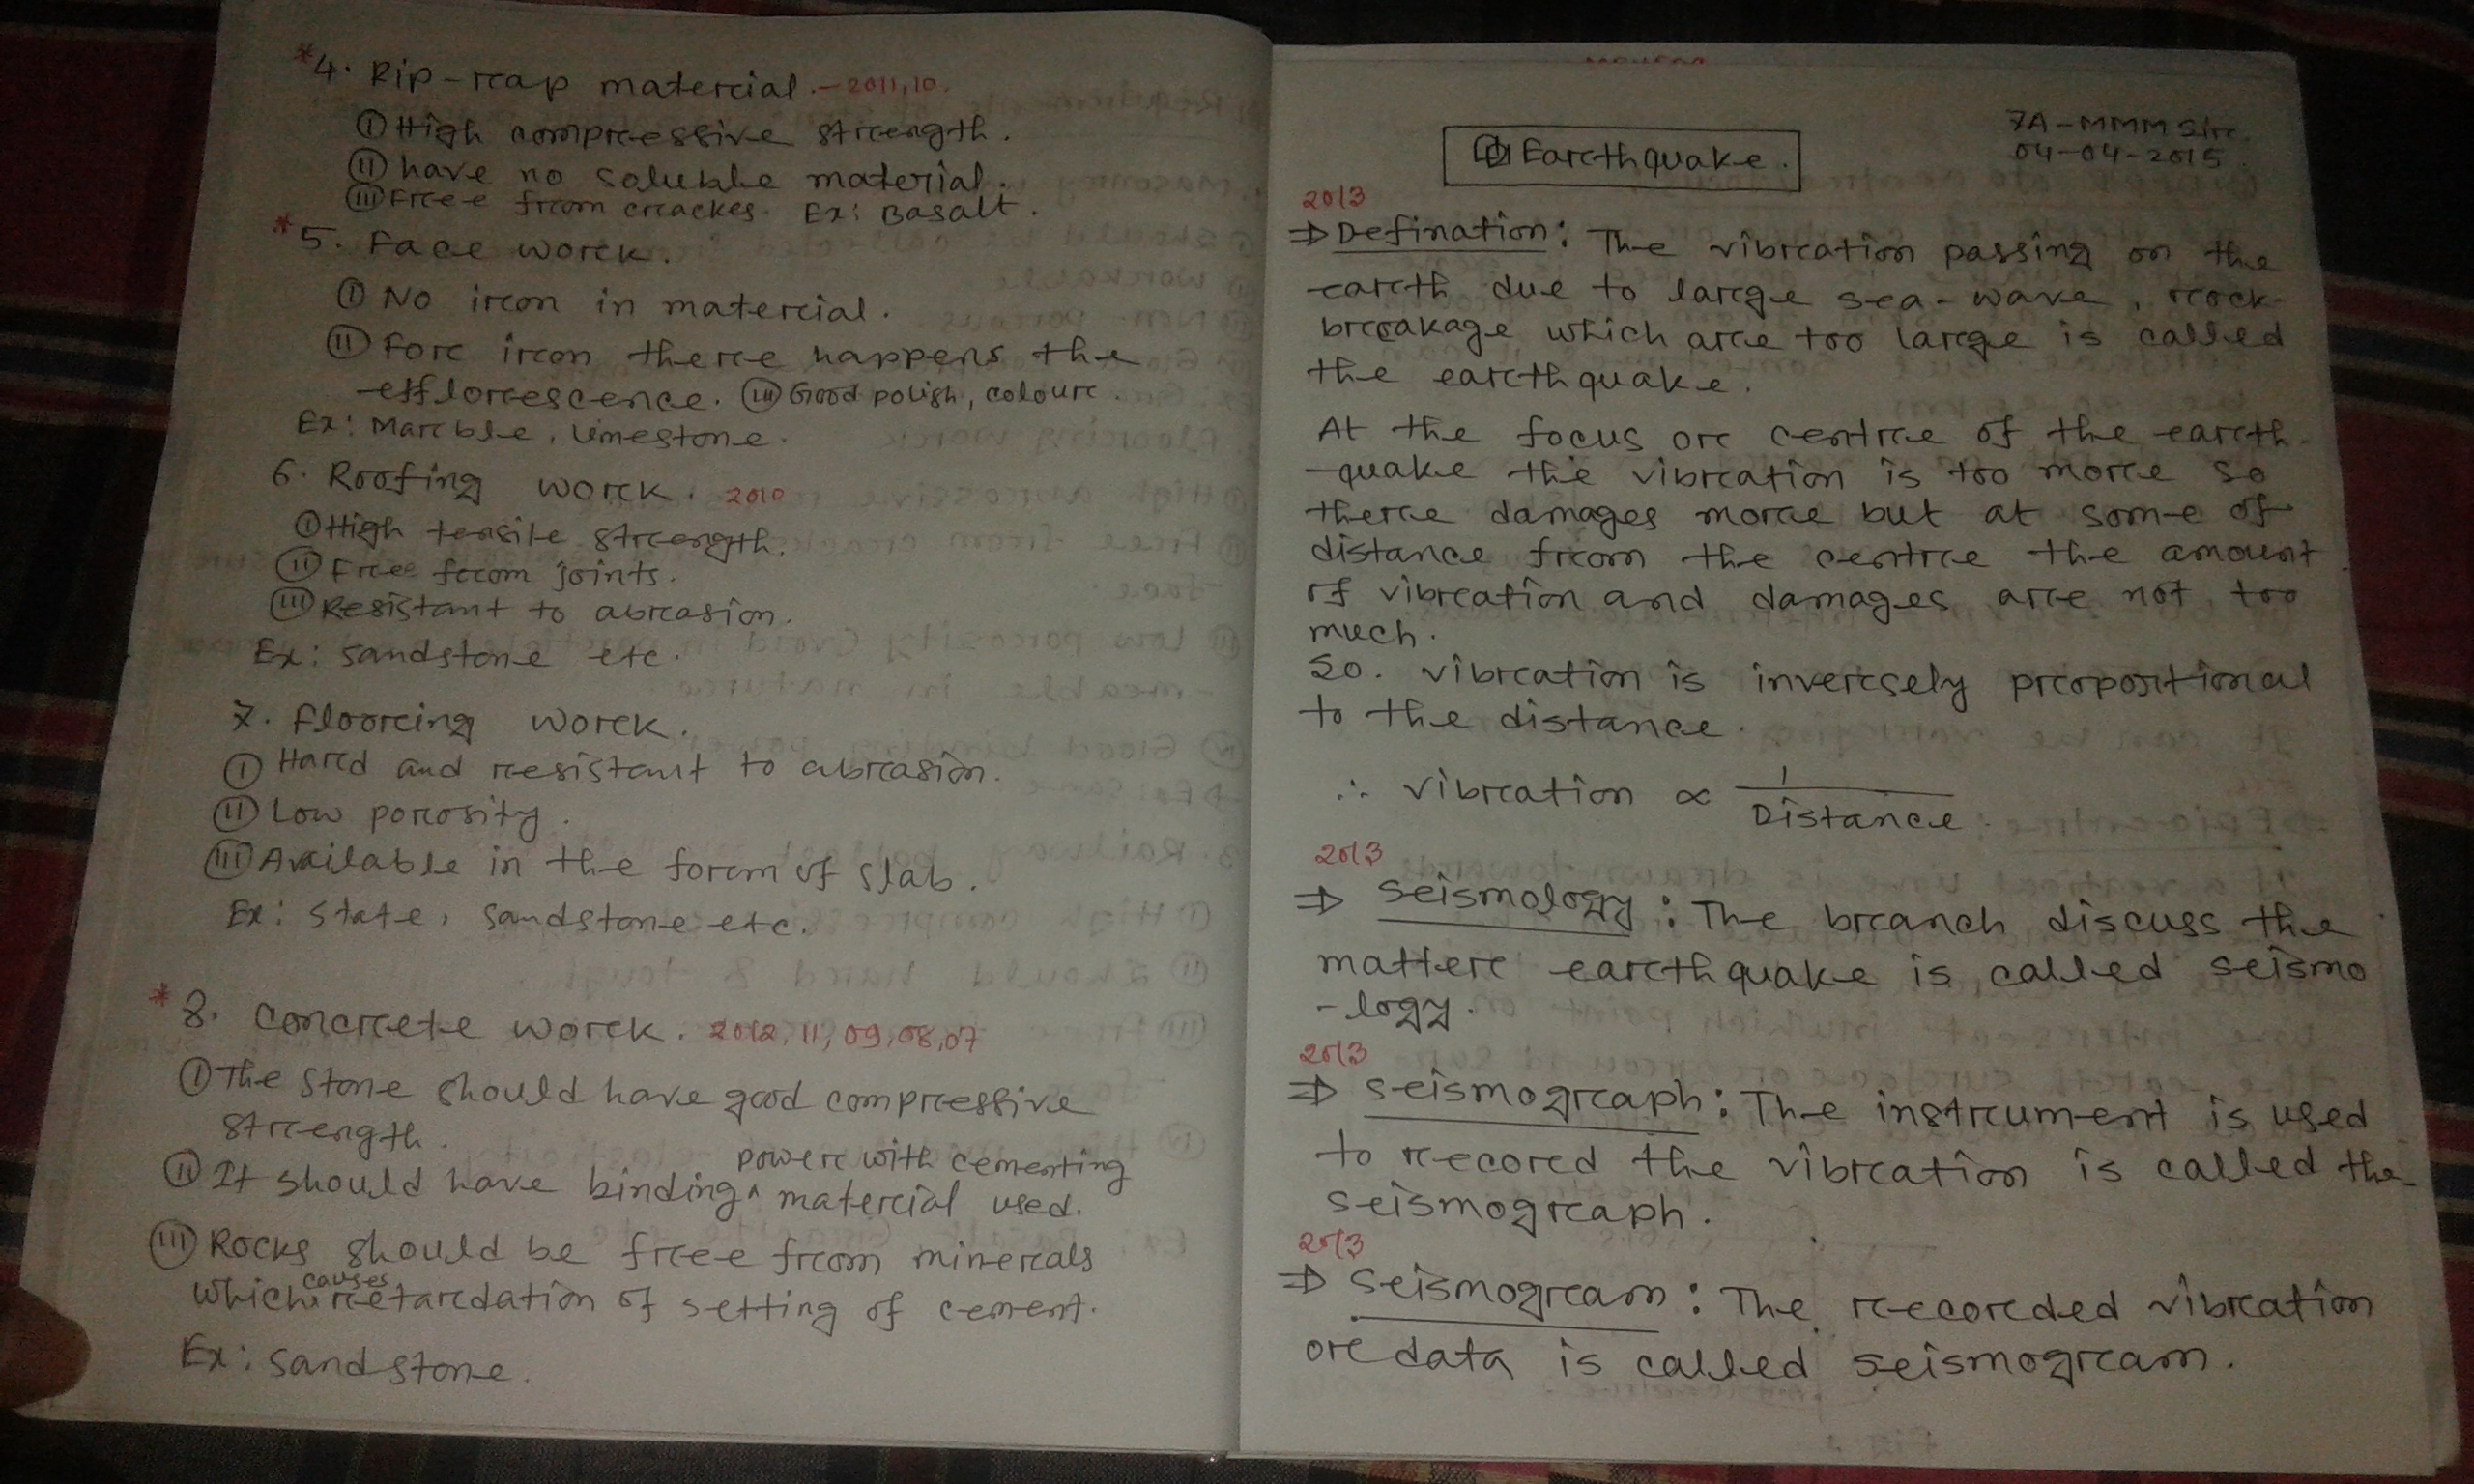 *4. Rip-rap material. - 2011, 10.
(I) High compressive strength.
(II) have no soluble material.
(III) Free from crackes. Ex: Basalt.
*5. Face work.
(I) No iron in material.
(II) For iron there happens the
efflorescence. (III) Good polish, colour.
Ex: Marble, limestone.
6. Roofing work. 2010
(I) High tensile strength.
(II) Free from joints.
(III) Resistant to abrasion.
Ex: sandstone etc.
7. Flooring work.
(I) Hard and resistant to abrasion.
(II) Low porosity.
(III) Available in the form of slab.
Ex: State, sandstone etc.
*8. Concrete work. 2012, 11, 09, 08, 07
(I) The stone should have good compressive
strength.
(II) It should have binding ^ power with cementing
material used.
(III) Rocks should be free from minerals
which causes retardation of setting of cement.
Ex: sandstone.
7A-MMM Sir
04-04-2015
Earthquake.
2013
⇒ Defination: The vibration passing on the
earth due to large sea-wave, rock
breakage which are too large is called
the earthquake.
At the focus or centre of the earth-
-quake the vibration is too more so
there damages more but at some of
distance from the centre the amount
of vibration and damages are not too
much.
So. vibration is inversely proportional
to the distance.
∴ vibration ∝ 1/Distance.
2013
⇒ Seismology: The branch discuss the
matter earthquake is called seismo
-logy.
2013
⇒ Seismograph: The instrument is used
to recored the vibration is called the
seismograph.
2013
⇒ Seismogram: The recorded vibration
or data is called seismogram.